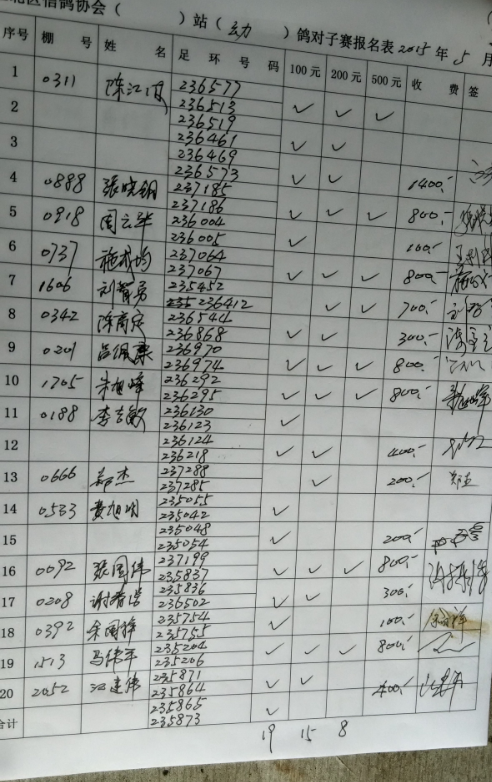 北区信鸽协会（ ）站（动）鸽对子赛报名表2015年5月
序号 棚号 姓名 足环号码 100元 200元 500元 收费 签
1 0311 236577
236513 ✓ ✓ ✓
2 236519
236461 ✓ ✓
3 236469
236573 ✓ ✓ 1400,-
4 0888 张晓钢 237185
237186 ✓ ✓ ✓ 800,-
5 0918 周云华 236004
236005 ✓ 100,-
6 0737 237064
237067 ✓ ✓ ✓ 800,-
7 1606 刘智勇 235452
236412 ✓ ✓ 700,-
8 0342 236544
236868 ✓ ✓ 300,-
9 0201 236970
236974 ✓ ✓ ✓ 800,-
10 1705 朱旭峰 236292
236295 ✓ ✓ ✓ 800,-
11 0188 李吉敏 236130
236123 ✓
12 236124
236218 ✓ ✓ 400,-
13 0666 郑杰 237288
237285 ✓ 200,-
14 0533 黄旭明 235055
235042 ✓
15 235048
235054 ✓ 200,-
16 0092 张国伟 237199
235837 ✓ ✓ ✓ 800,-
17 0208 235836
236502 ✓ ✓ 300,-
18 0392 余国祥 235754
235755 ✓ 100,-
19 1513 马伟平 235204
235206 ✓ ✓ ✓ 800,-
20 2052 江建伟 235871
235864 ✓ ✓ 400,-
合计 235865
235873 ✓
19 15 8